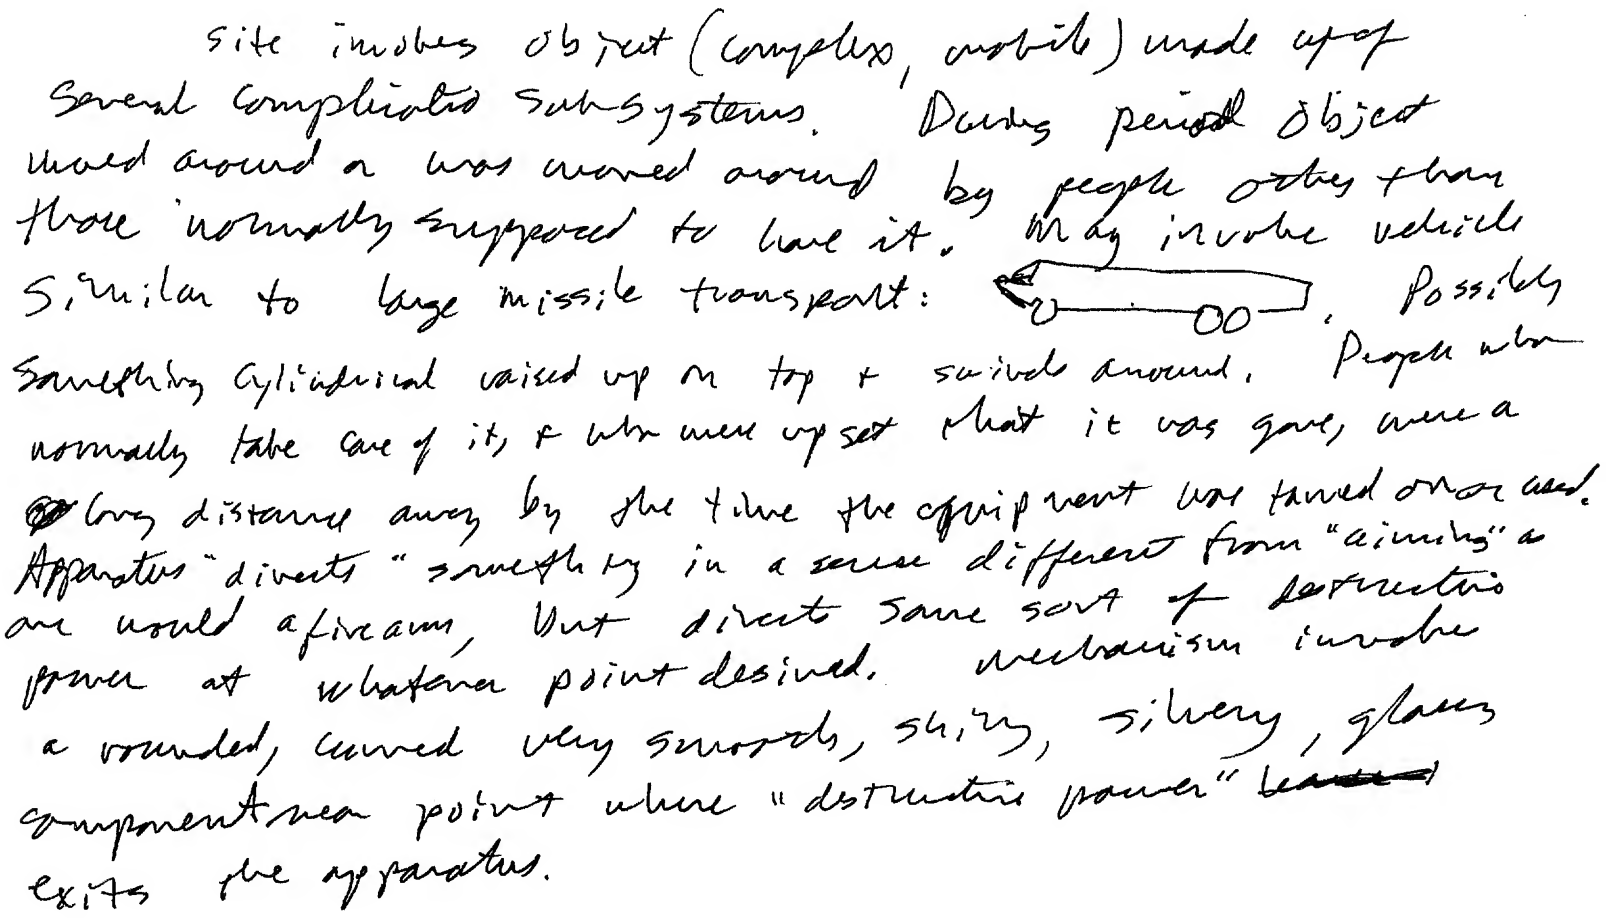 site involves object (complex, mobile) made up of
several complicated subsystems. During period object
moved around or was moved around by people other than
those normally supposed to have it. May involve vehicle
similar to large missile transport: . Possibly
something cylindrical raised up on top + swivels around. People who
normally take care of it, + who were upset that it was gone, were a
long distance away by the time the equipment was turned on or used.
Apparatus "directs" something in a sense different from "aiming" as
one would a firearm, but directs some sort of destructive
power at whatever point desired. Mechanism involves
a rounded, curved very smooth, shiny, silvery, glassy
component near point where "destructive power"
exits the apparatus.